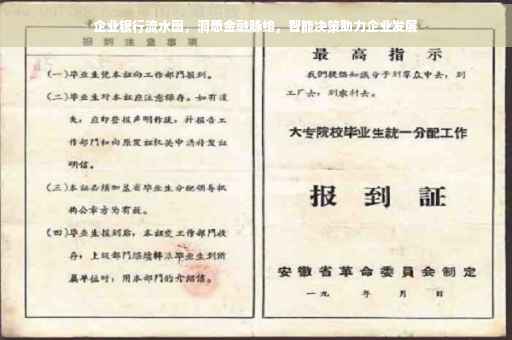 企业银行流水图，洞悉金融脉络，智能决策助力企业发展
报到注意事项
（一）毕业生凭本证向工作部门报到。
（二）毕业生对本证应注意保存。如有遗
失，应即登报声明作废，并报告工
作部门和向原发证机关申请补发证
明信。
（三）本证必须加盖省毕业生分配领导机
构公章方为有效。
（四）毕业生报到后，本证交工作部门收
存；上级部门继续转派毕业生到所
属单位时，用本部门的介绍信。
最高指示
我们提倡知识分子到群众中去，到
工厂去，到农村去。
大专院校毕业生统一分配工作
报到证
安徽省革命委员会制定
一九 年 月 日